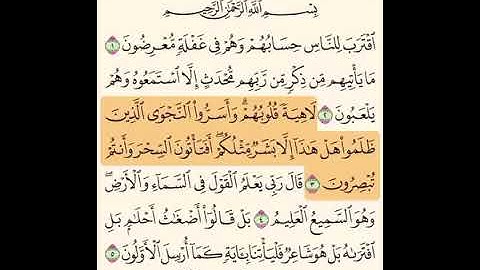 بِسْمِ ٱللَّهِ ٱلرَّحْمَٰنِ ٱلرَّحِيمِ
ٱقْتَرَبَ لِلنَّاسِ حِسَابُهُمْ وَهُمْ فِى غَفْلَةٍ مُّعْرِضُونَ ١
مَا يَأْتِيهِم مِّن ذِكْرٍ مِّن رَّبِّهِم مُّحْدَثٍ إِلَّا ٱسْتَمَعُوهُ وَهُمْ
يَلْعَبُونَ ٢ لَاهِيَةً قُلُوبُهُمْ ۗ وَأَسَرُّوا۟ ٱلنَّجْوَى ٱلَّذِينَ
ظَلَمُوا۟ هَلْ هَٰذَآ إِلَّا بَشَرٌ مِّثْلُكُمْ ۖ أَفَتَأْتُونَ ٱلسِّحْرَ وَأَنتُمْ
تُبْصِرُونَ ٣ قَالَ رَبِّى يَعْلَمُ ٱلْقَوْلَ فِى ٱلسَّمَآءِ وَٱلْأَرْضِ ۖ
وَهُوَ ٱلسَّمِيعُ ٱلْعَلِيمُ ٤ بَلْ قَالُوٓا۟ أَضْغَٰثُ أَحْلَٰمٍۭ بَلِ
ٱفْتَرَىٰهُ بَلْ هُوَ شَاعِرٌ فَلْيَأْتِنَا بِـَٔايَةٍ كَمَآ أُرْسِلَ ٱلْأَوَّلُونَ ٥